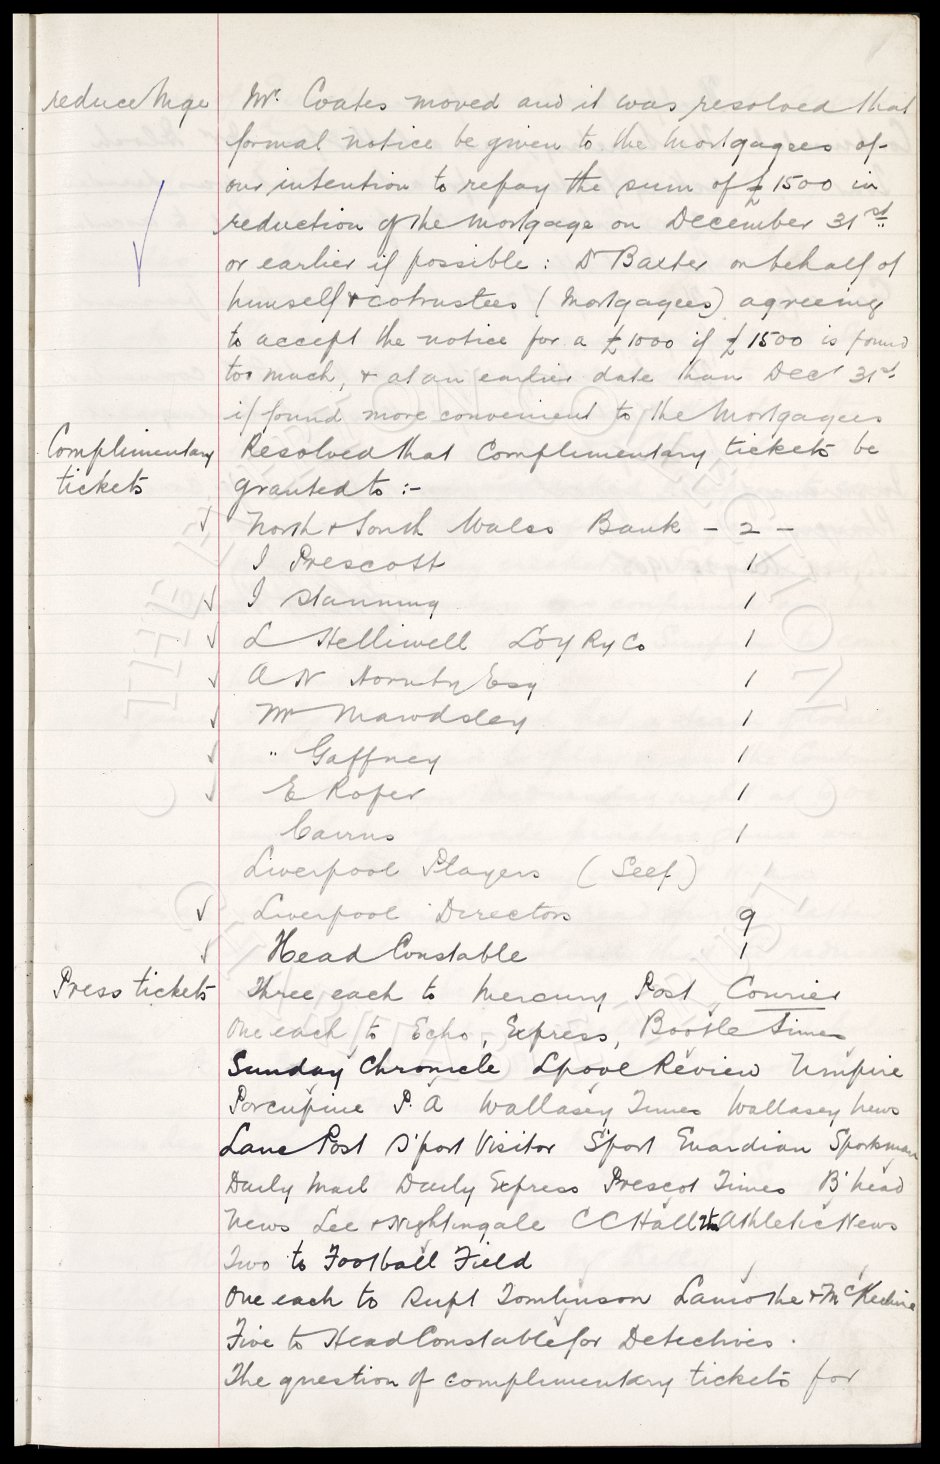 reduce Mge Mr. Coates moved and it was resolved that
formal notice be given to the Mortgagees of
our intention to repay the sum of £1500 in
reduction of the Mortgage on December 31st
or earlier if possible: Dr Baxter on behalf of
himself & cotrustees (Mortgagees) agreeing
to accept the notice for a £1000 if £1500 is found
too much, & at an earlier date than Dec 31st
if found more convenient to the Mortgagees
Complimentary Resolved that Complimentary tickets be
tickets granted to :-
North & South Wales Bank - 2 -
J Prescott 1
J Stanning 1
L Helliwell L&Y Ry Co 1
A N Hornby Esq 1
Mr Mawdsley 1
" Gaffney 1
E Roper 1
Cairns 1
Liverpool Players (Self)
Liverpool Directors 9
Head Constable 1
Press tickets Three each to Mercury Post Courier
One each to Echo, Express, Bootle Times
Sunday Chronicle Lpool Review Umpire
Porcupine P. A Wallasey Times Wallasey News
Lanc Post S'port Visitor S'port Guardian Sportsman
Daily Mail Daily Express Prescot Times B'head
News Lee & Nightingale C C Hall Athletic News
Two to Football Field
One each to Supt Tomlinson Lamothe & McKechnie
Five to Head Constable for Detectives.
The question of complimentary tickets for